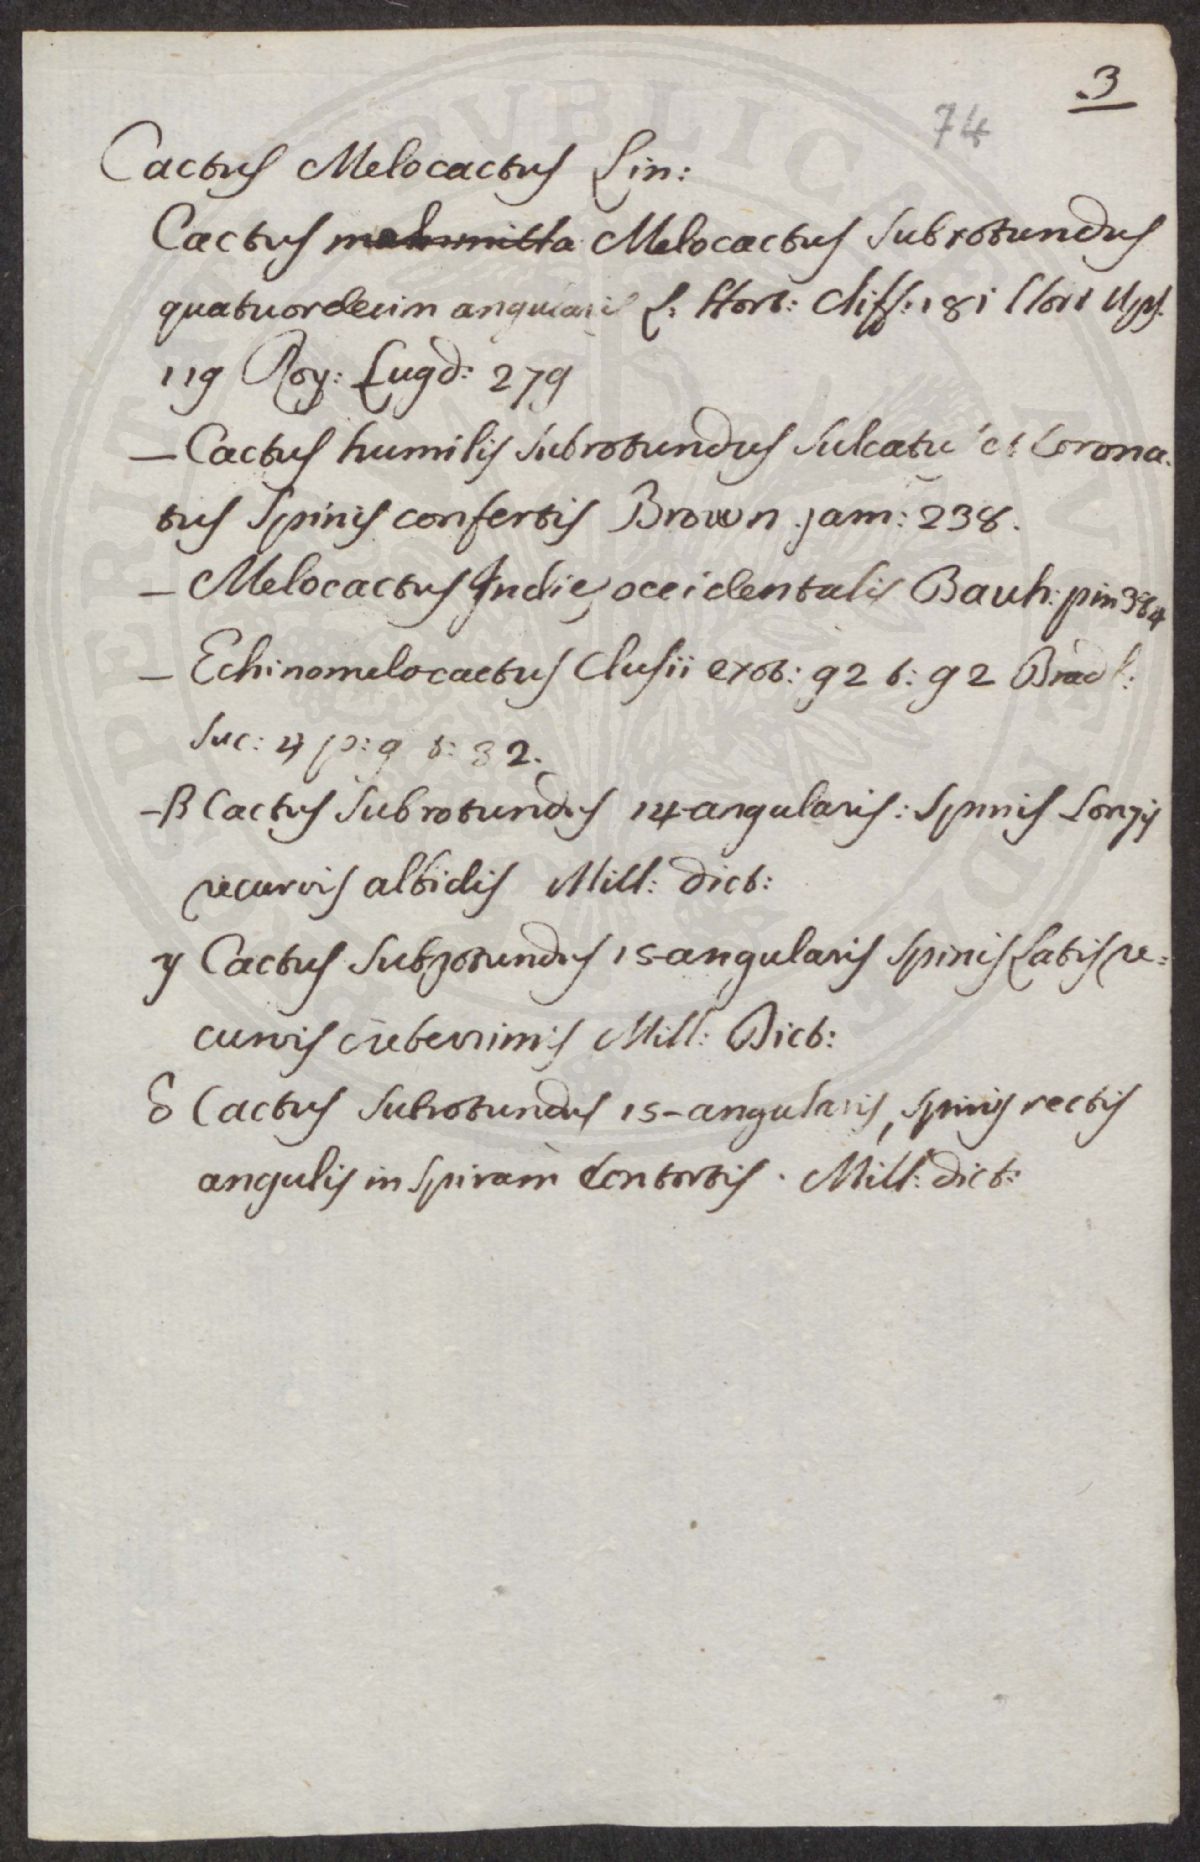 3
74
Cactus Melocactus Lin:
Cactus Melocactus subrotundus
quatuordecim angularis L. Hort: Cliff: 181 Hort Ups.
119 Roy: Lugd: 279
— Cactus humilis subrotundus sulcatu et Corona-
tus Spinis confertis Brown jam: 238.
— Melocactus Indie occidentalis Bauh: pin 384
— Echinomelocactus Clusii exot: 92 t: 92 Bradl:
suc: 4 p: 9 t: 32.
- β Cactus subrotundus 14-angularis: Spinis Longis
recurvis albidis Mill: dict:
γ Cactus subrotundus 15-angularis Spinis Latis re=
curvis creberrimis Mill: Dict:
δ Cactus subrotundus 15-angularis, Spinis rectis
angulis in Spiram Contortis. Mill: dict: